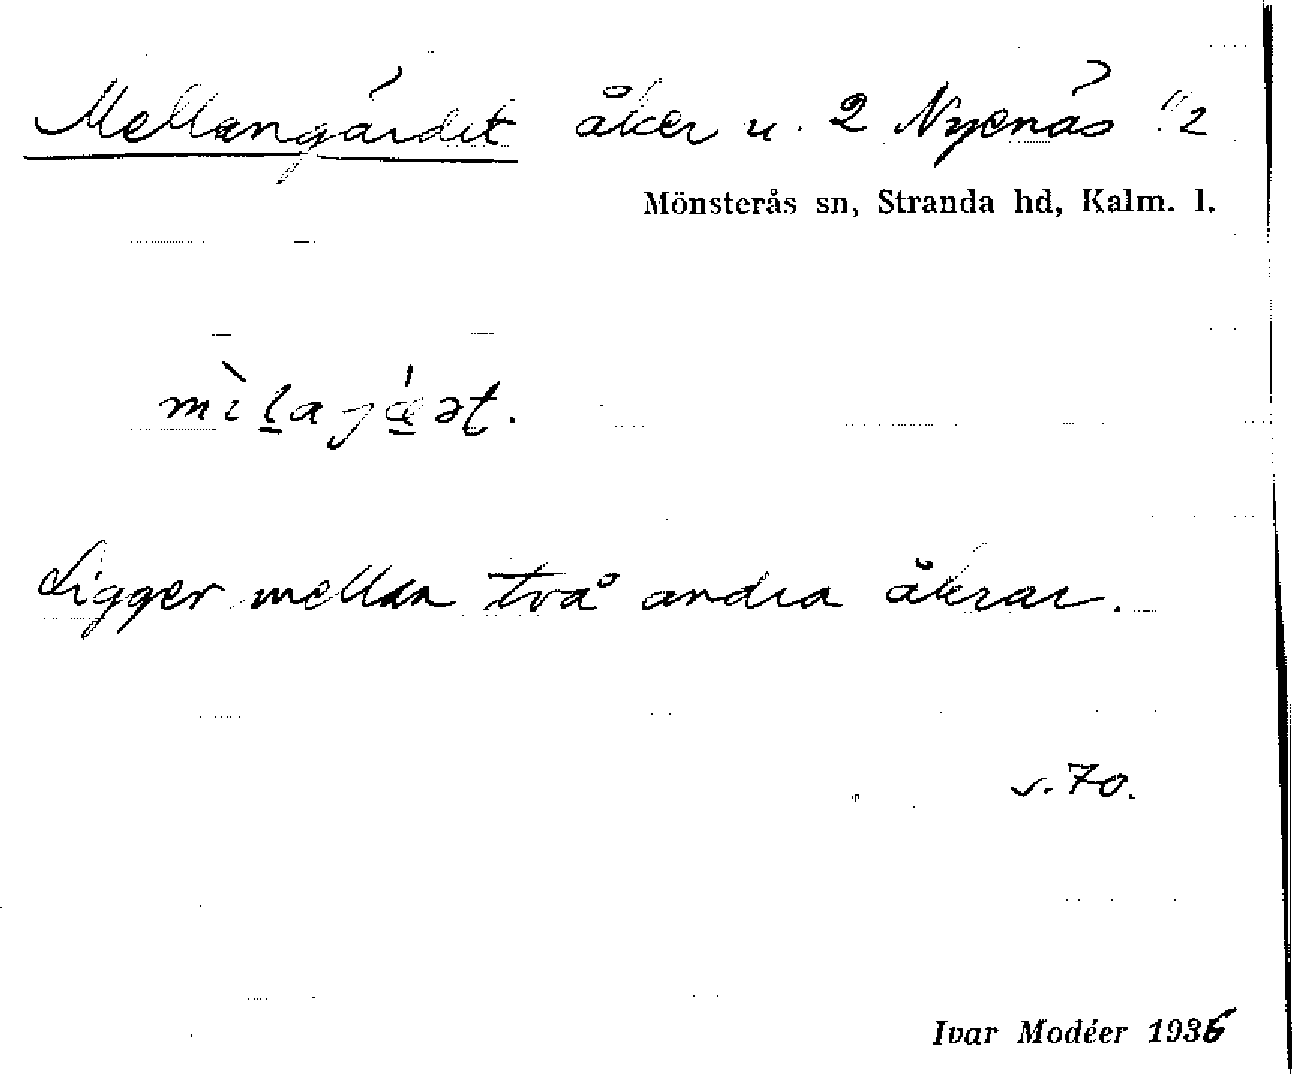 Mellangärdet åker u. 2 Nyenäs "2
Mönsterås sn, Stranda hd, Kalm. l.
mìḻajǽ̱ət.
Ligger mellan två andra åkrar.
s. 70.
Ivar Modéer 1936